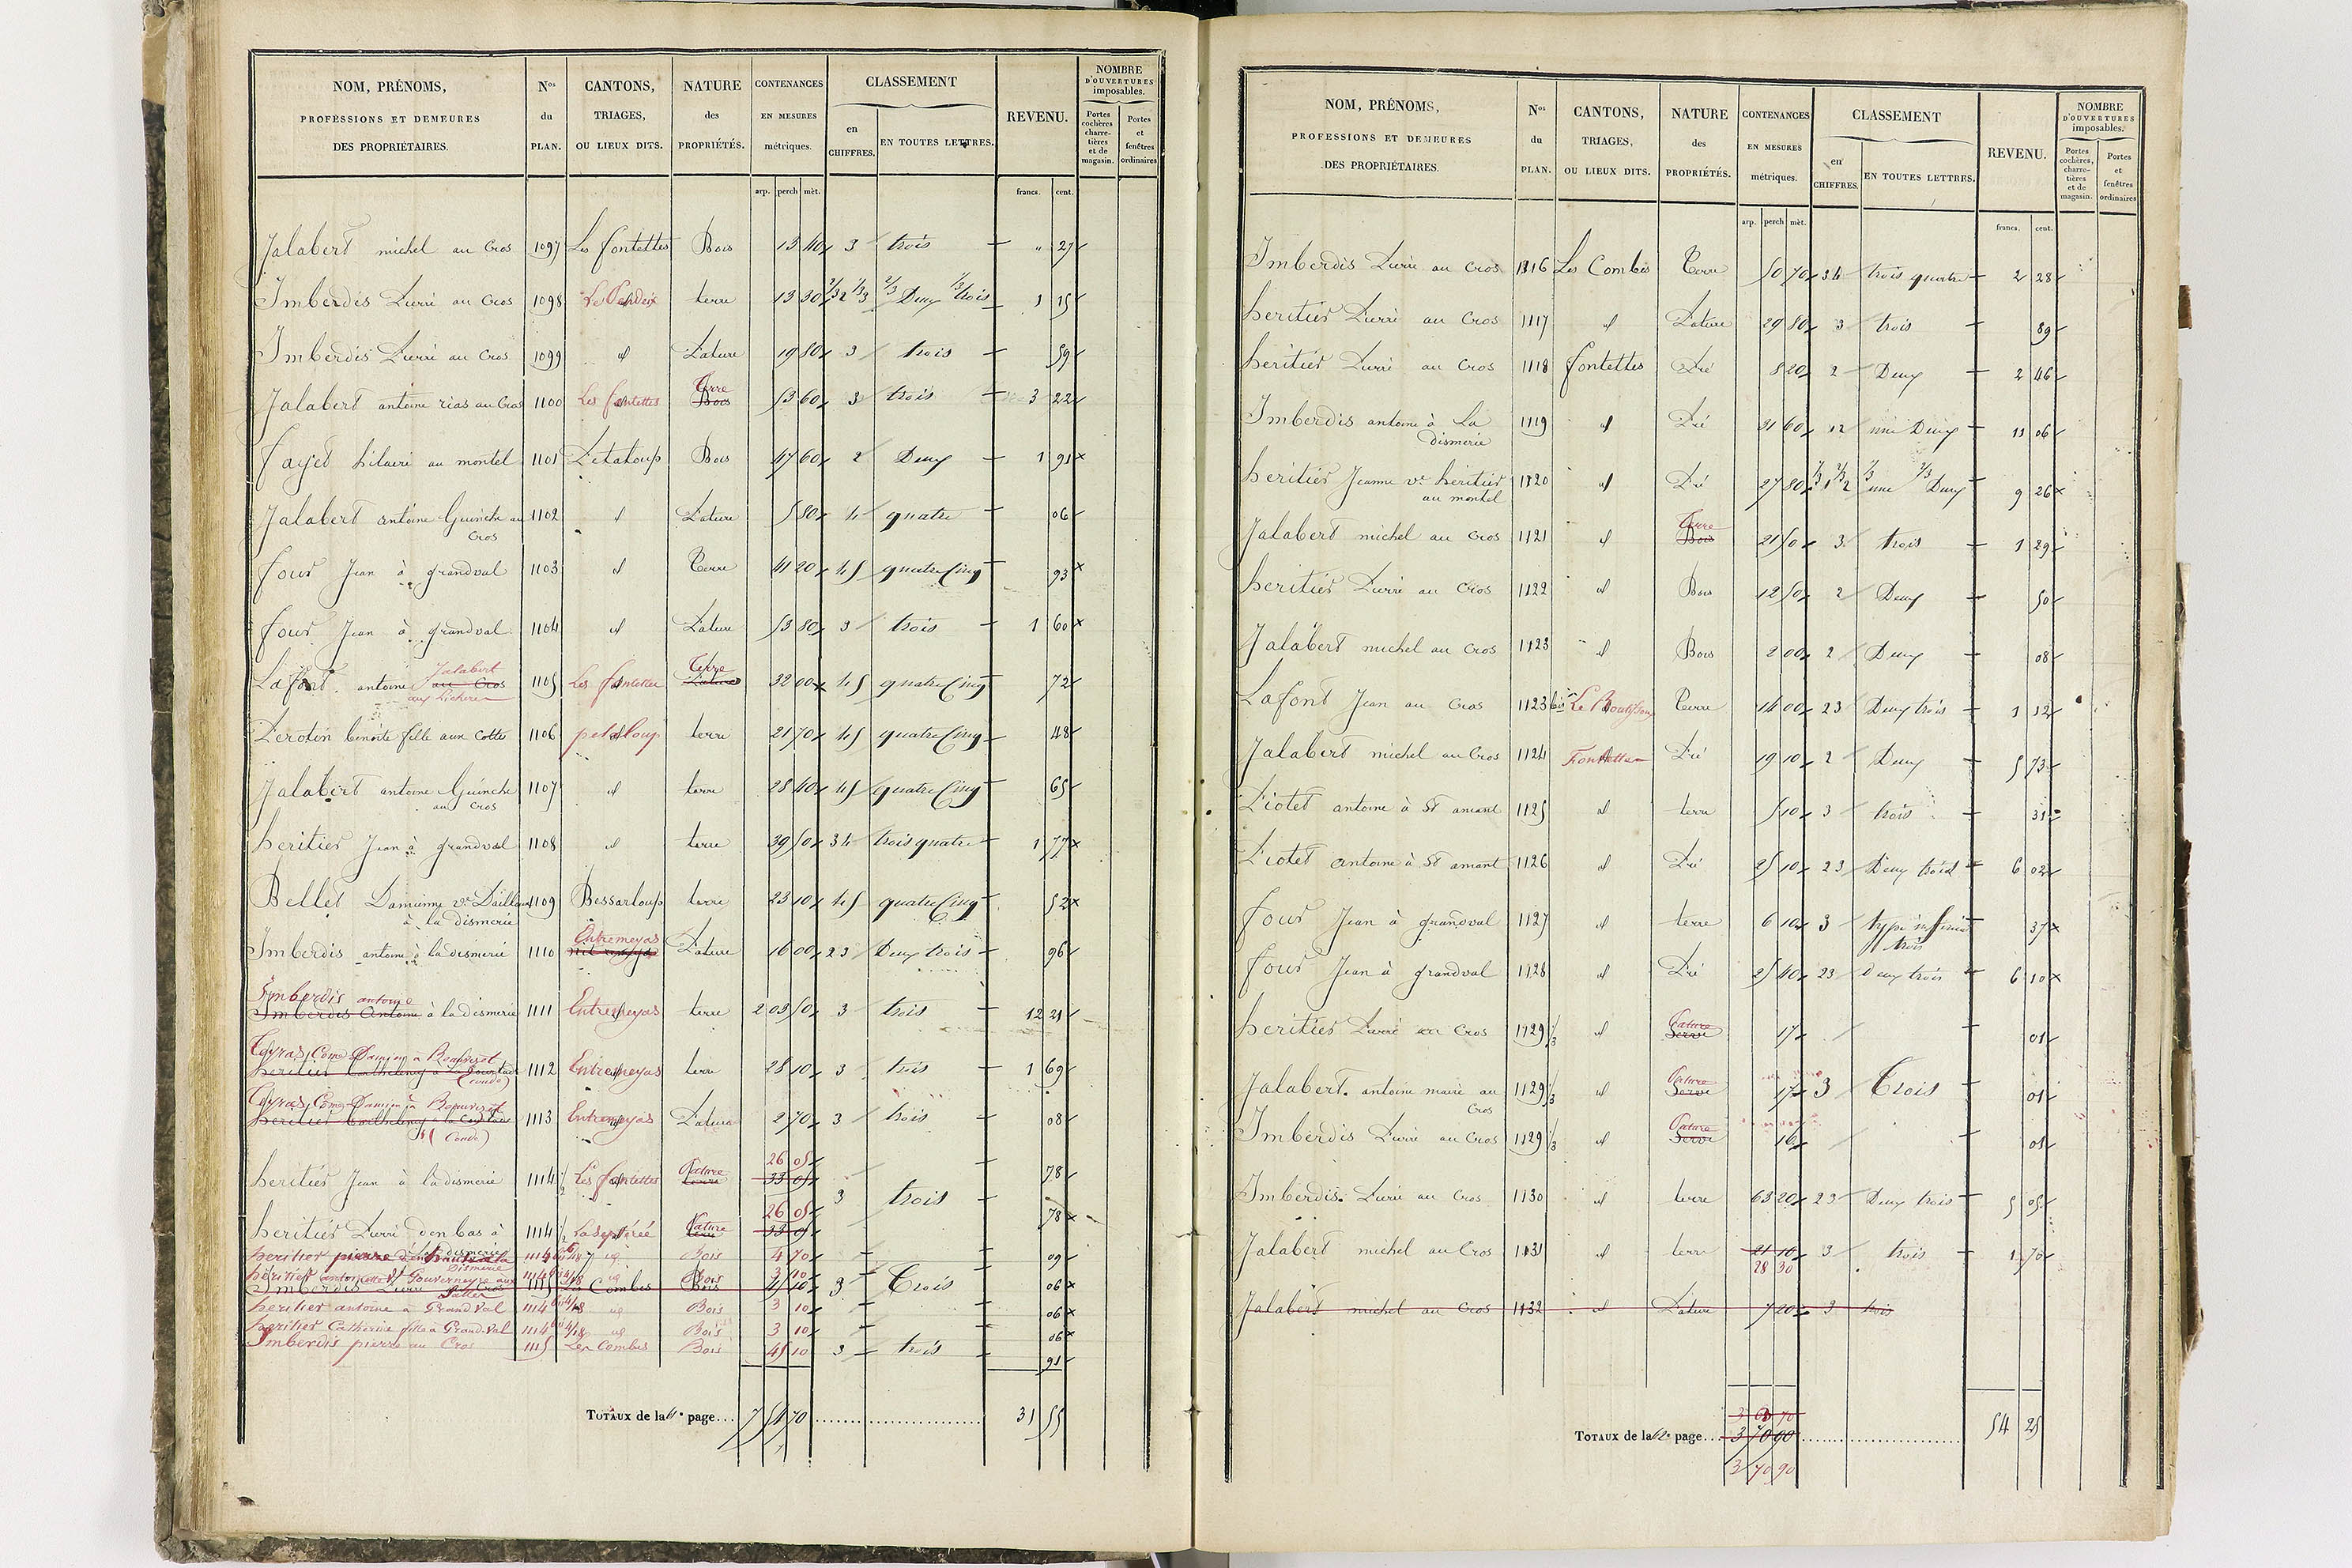 NOM, PRÉNOMS, PROFESSIONS ET DEMEURES DES PROPRIÉTAIRES. Nos du PLAN. CANTONS, TRIAGES, OU LIEUX DITS. NATURE des PROPRIÉTÉS. CONTENANCES EN MESURES métriques. CLASSEMENT en CHIFFRES. EN TOUTES LETTRES. REVENU. NOMBRE D'OUVERTURES imposables. Portes cochères charretières et de magasin. Portes et fenêtres ordinaires
arp. perch mèt. francs. cent.
Jalabert michel au Cros 1097 Les fontettes Bois 13 40 3 trois " 27
Imberdis Pierre au Cros 1098 terre 13 30 2/3 2 1/3 3 2/3 Deux 1/3 trois 1 15
Imberdis Pierre au Cros 1099 id Pature 19 80 3 trois 59
Jalabert antoine rias au Cros 1100 Les fontettes Terre Bois 53 60 3 trois 3 22
fayet hilaire au montel 1101 Petaloup Bois 47 60 2 Deux 1 91
Jalabert antoine Guinche au 1102 id Pature 5 80 4 quatre 06
Cros
four Jean à grandval 1103 id Terre 41 20 45 quatre Cinq 93
four Jean à grandval 1104 id Pature 53 80 3 trois 1 60
Jalabert Terre
Lafont antoine au Cros 1105 Les fontettes Pature 32 00 45 quatre Cinq 72
Perotin benoite fille aux Cottes 1106 petaloup terre 21 70 45 quatre Cinq 48
Jalabert antoine Guinche 1107 id terre 28 40 45 quatre Cinq 65
au Cros
heritier Jean à grandval 1108 id terre 39 50 34 trois quatre 1 77
Bellet Damienne ve 1109 Bessarloup terre 23 10 45 quatre Cinq 52
à la dismerie
Entremeyas
Imberdis antoine à la dismerie 1110 Pature 16 00 23 Deux trois 96
Imberdis antoine
Imberdis Antoine à la dismerie 1111 Entremeyas terre 2 03 50 3 trois 12 21
Cyras, Côme Damien a Beauvezet
heritier Barthelemy 1112 Entremeyas terre 28 10 3 trois 1 69
Cyras, Côme Damien à Beauvezet
heritier Barthelemy 1113 Entremeyas Pature 2 70 3 trois 08
26 05
heritier Jean à la dismerie 1114 1/2 Les fontettes Pature terre 33 05 3 trois 78
26 05
heritier Pierre d'en bas à 1114 1/2 Pature terre 33 05 78
la dismerie
heritier pierre 1114 id Bois 4 70 09
heritier antoinette ve Gouverneyre aux 1114 id Bois 3 10
Imberdis Pierre au Cros 1115 Les Combes Bois 45 10 3 Trois 06
heritier antoine a Grandval 1114 id Bois 3 10 06
heritier Catherine fille a Grandval 1114 id Bois 3 10 06
Imberdis pierre au Cros 1115 Les Combes Bois 45 10 3 trois 91
TOTAUX de la page... 7 51 70 31 55
NOM, PRÉNOMS, PROFESSIONS ET DEMEURES DES PROPRIÉTAIRES. Nos du PLAN. CANTONS, TRIAGES, OU LIEUX DITS. NATURE des PROPRIÉTÉS. CONTENANCES EN MESURES métriques. CLASSEMENT en CHIFFRES. EN TOUTES LETTRES. REVENU. NOMBRE D'OUVERTURES imposables. Portes cochères, charretières et de magasin. Portes et fenêtres ordinaires
arp. perch mèt. francs. cent.
Imberdis Pierre au Cros 1116 Les Combes Terre 50 70 34 trois quatre 2 28
heritier Pierre au Cros 1117 id Pature 29 80 3 trois 89
heritier Pierre au Cros 1118 fontettes Pré 8 20 2 Deux 2 46
Imberdis antoine à La 1119 id Pré 31 60 12 une Deux 11 06
dismerie
heritier Jeanne ve heritier 1120 id Pré 27 80 1/3 1 2/3 2 1/3 une 2/3 Deux 9 26
au montel
Jalabert michel au Cros 1121 id Terre Bois 21 50 3 trois 1 29
heritier Pierre au Cros 1122 id Bois 12 50 2 Deux 50
Jalabert michel au Cros 1123 id Bois 2 00 2 Deux 08
Lafont Jean au Cros 1123 bis Terre 14 00 23 Deux trois 1 12
Jalabert michel au Cros 1124 Fontettes Pré 19 10 2 Deux 5 73
Piotet antoine à St amant 1125 id terre 5 10 3 trois 31
Piotet antoine à St amant 1126 id Pré 25 10 23 Deux trois 6 02
four Jean à grandval 1127 id terre 6 10 3 type inférieur 37
trois
four Jean à grandval 1128 id Pré 25 40 23 deux trois 6 10
heritier Pierre au Cros 1129 1/3 id Pature Serve 17 01
Jalabert antoine maire au 1129 1/3 id Pature Serve 17 3 Trois 01
Cros
Imberdis Pierre au Cros 1129 1/3 id Pature Serve 16 01
Imberdis Pierre au Cros 1130 id terre 63 20 23 Deux trois 5 05
Jalabert michel au Cros 1131 id terre 21 10 3 trois 1 70
28 30
Jalabert michel au Cros 1132 id Pature 7 20 3 trois
3 63 70
TOTAUX de la 62e page... 3 70 90 54 25
3 70 90